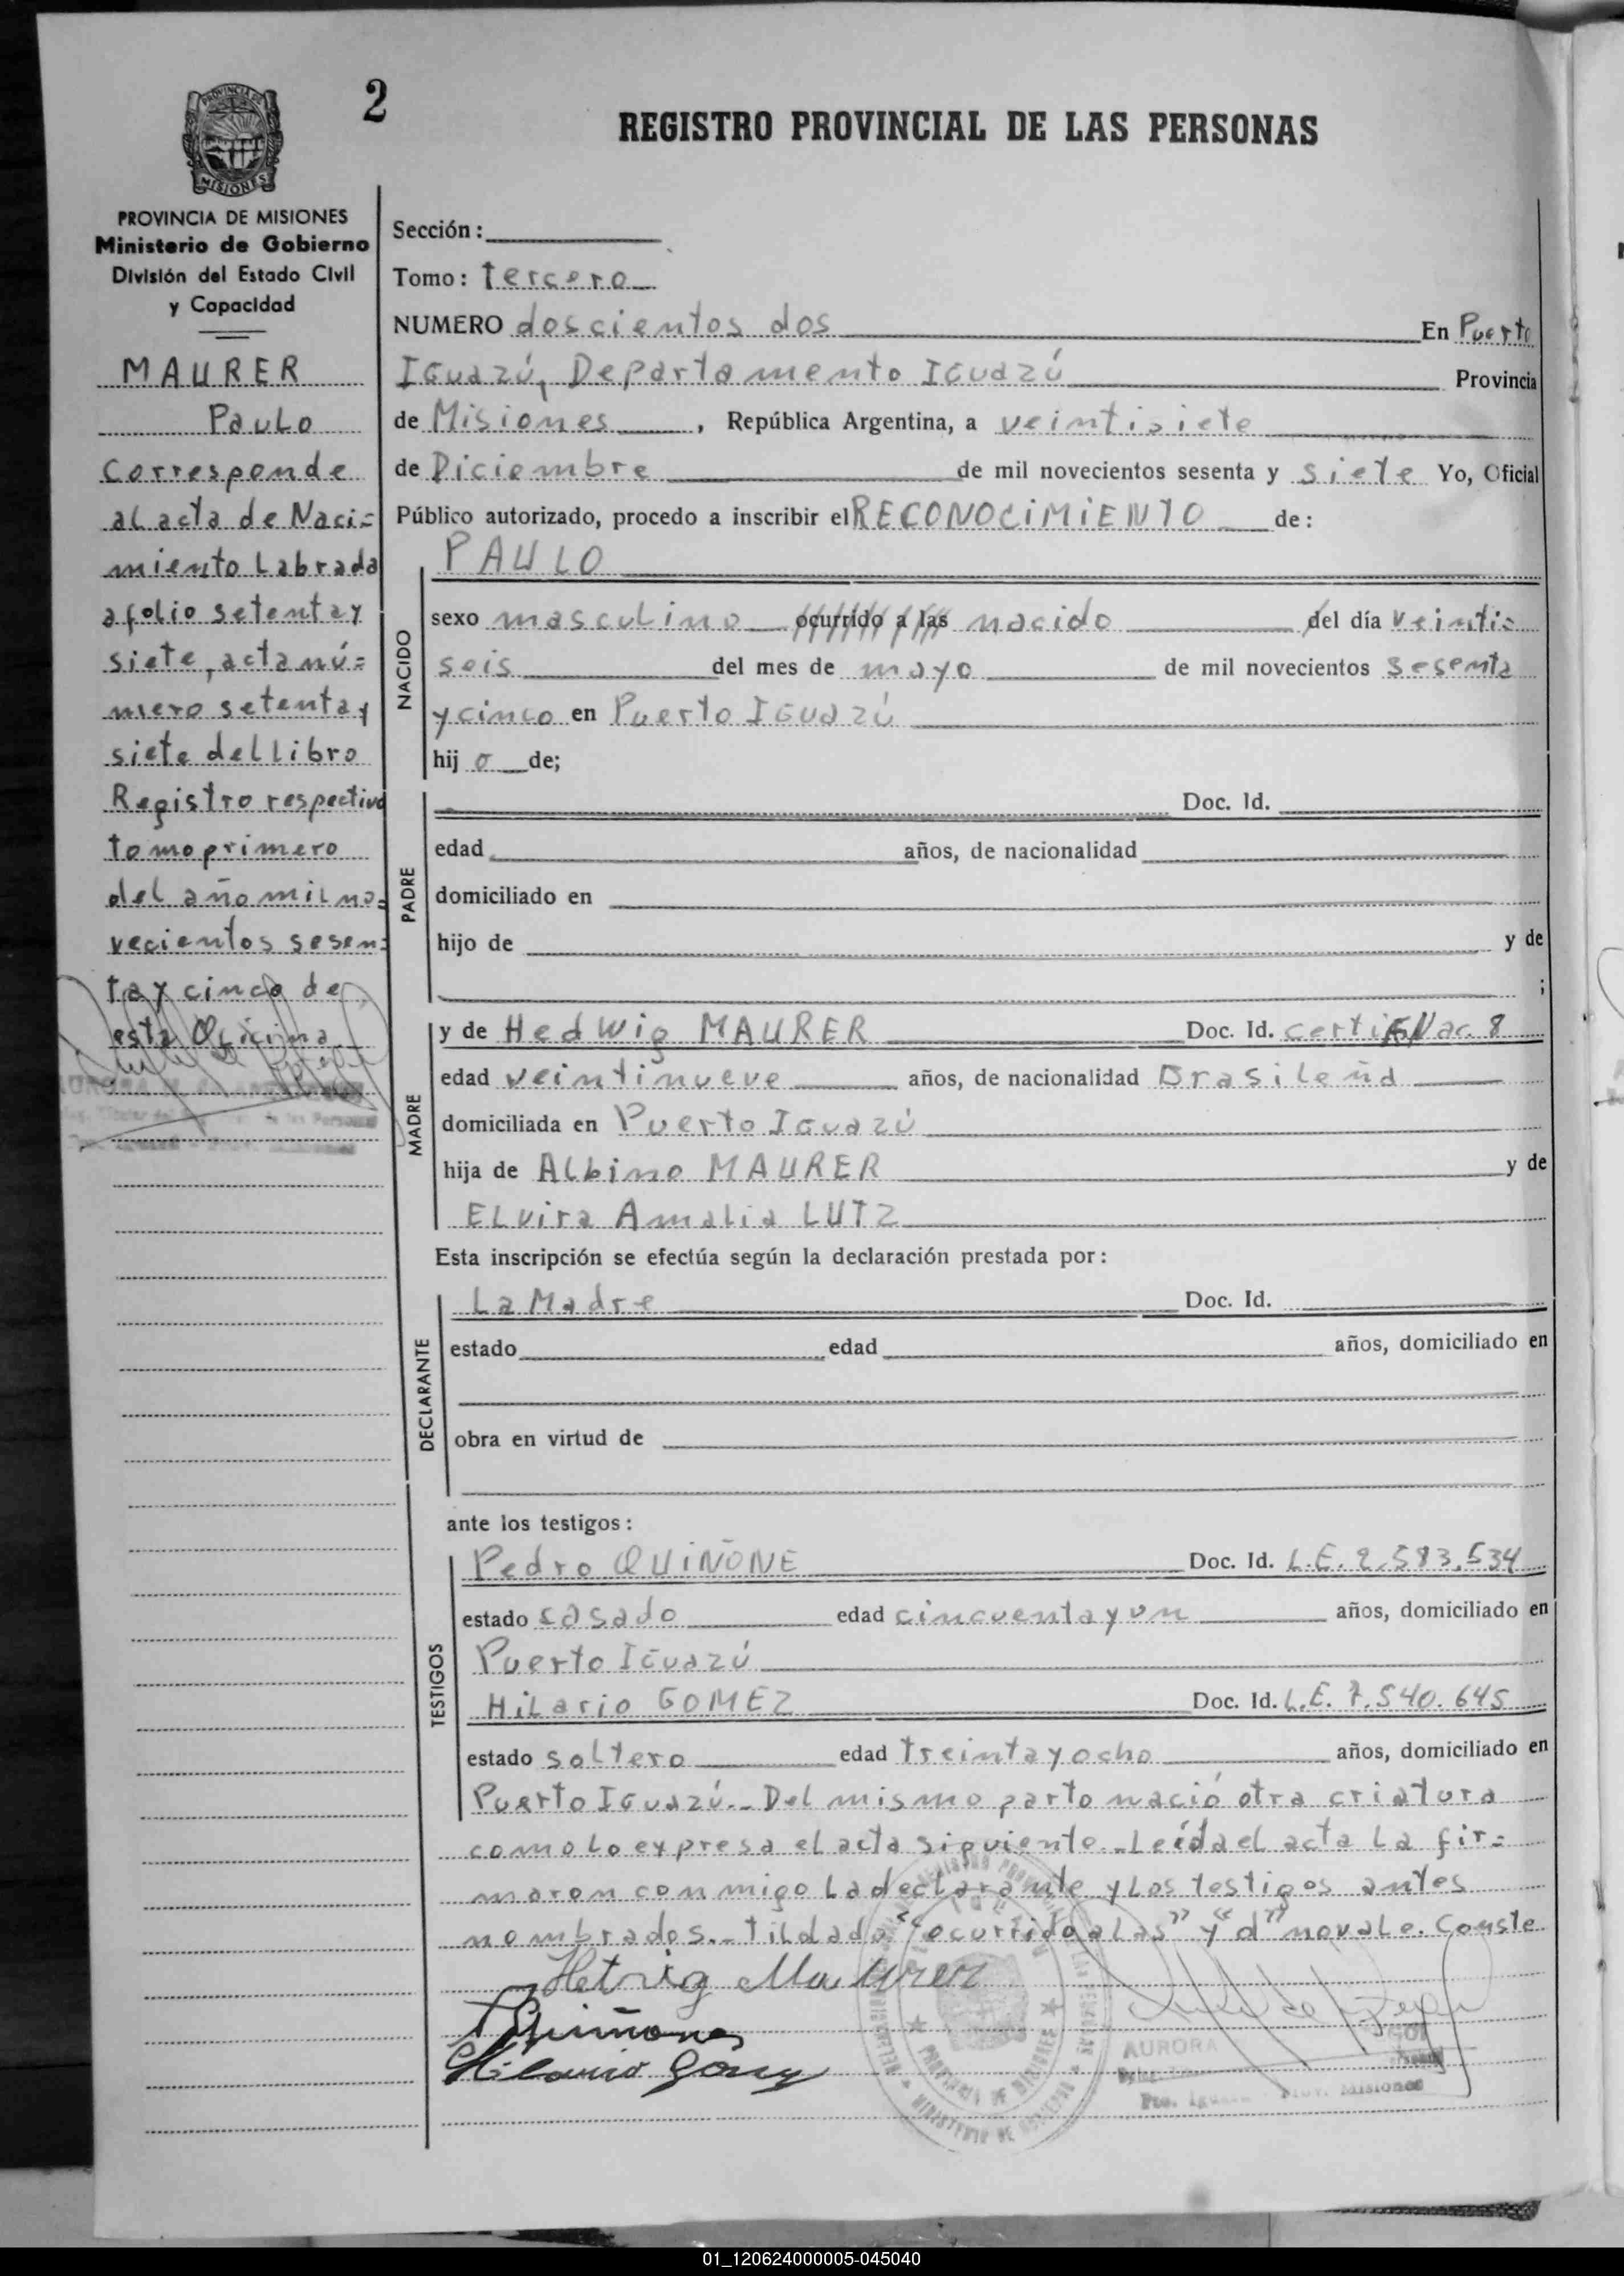 2
REGISTRO PROVINCIAL DE LAS PERSONAS
PROVINCIA DE
MISIONES
PROVINCIA DE MISIONES
Ministerio de Gobierno
División del Estado Civil
y Capacidad
MAURER
Paulo
Corresponde
al acta de Naci=
miento Labrada
a folio setenta y
siete, acta nú=
mero setenta y
siete del Libro
Registro respectivo
tomo primero
del año mil no=
vecientos sesen=
ta y cinco de
esta Oficina
Sección:
Tomo: tercero
NUMERO doscientos dos En Puerto
Iguazú, Departamento Iguazú Provincia
de Misiones, República Argentina, a veintisiete
de Diciembre de mil novecientos sesenta y siete Yo, Oficial
Público autorizado, procedo a inscribir el RECONOCIMIENTO de:
NACIDO
PAULO
sexo masculino ocurrido a las nacido del día veinti=
seis del mes de mayo de mil novecientos sesenta
y cinco en Puerto Iguazú
hij o de;
PADRE
Doc. Id.
edad años, de nacionalidad
domiciliado en
hijo de y de
;
MADRE
y de Hedwig MAURER Doc. Id. certif. Nac. 8
edad veintinueve años, de nacionalidad Brasileña
domiciliada en Puerto Iguazú
hija de Albino MAURER y de
Elvira Amalia LUTZ
Esta inscripción se efectúa según la declaración prestada por:
DECLARANTE
La Madre Doc. Id.
estado edad años, domiciliado en
obra en virtud de
ante los testigos:
TESTIGOS
Pedro QUIÑONE Doc. Id. L.E. 2.583.534
estado casado edad cincuenta y un años, domiciliado en
Puerto Iguazú
Hilario GOMEZ Doc. Id. L.E. 7.540.645
estado soltero edad treinta y ocho años, domiciliado en
Puerto Iguazú.- Del mismo parto nació otra criatura
como lo expresa el acta siguiente.- Leída el acta la fir=
maron conmigo la declarante y los testigos antes
nombrados.- tildado "ocurrido a las" y "d" no vale. Conste
Hetwig Maurer
Quiñones
Hilario Gomez
PROVINCIA DE MISIONES
MINISTERIO DE GOBIERNO
AURORA
Pto. Iguazú Prov. Misiones
01_120624000005-045040